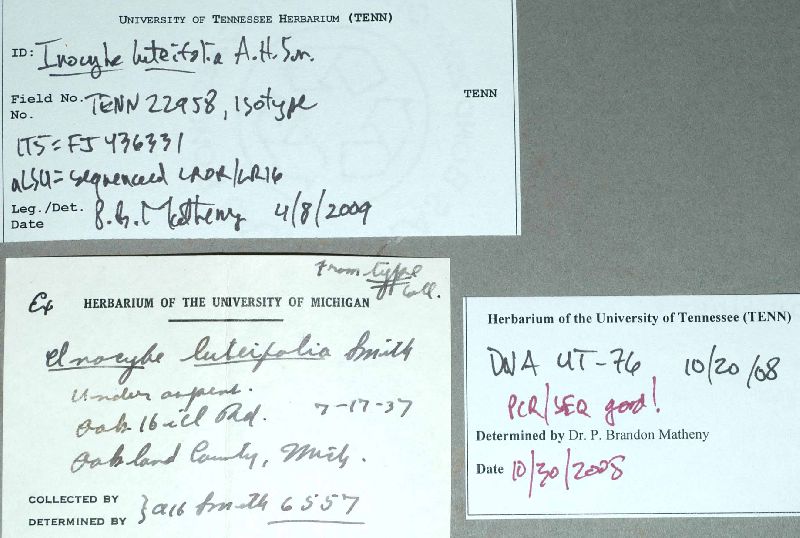 UNIVERSITY OF TENNESSEE HERBARIUM (TENN)
ID: Inocybe luteifolia A.H.Sm.
Field No. TENN 22958, Isotype
No.
TENN
ITS = FJ 436331
nLSU = sequenced LROR/LR16
Leg./Det. P.B. Matheny 4/8/2009
Date
From type coll.
Ex HERBARIUM OF THE UNIVERSITY OF MICHIGAN
Inocybe luteifolia Smith
Under aspen.
Oak Hill Rd. 7-17-37
Oakland County, Mich.
COLLECTED BY
DETERMINED BY } AH Smith 6557
Herbarium of the University of Tennessee (TENN)
DNA UT-76 10/20/08
PCR/SEQ good!
Determined by Dr. P. Brandon Matheny
Date 10/30/2008